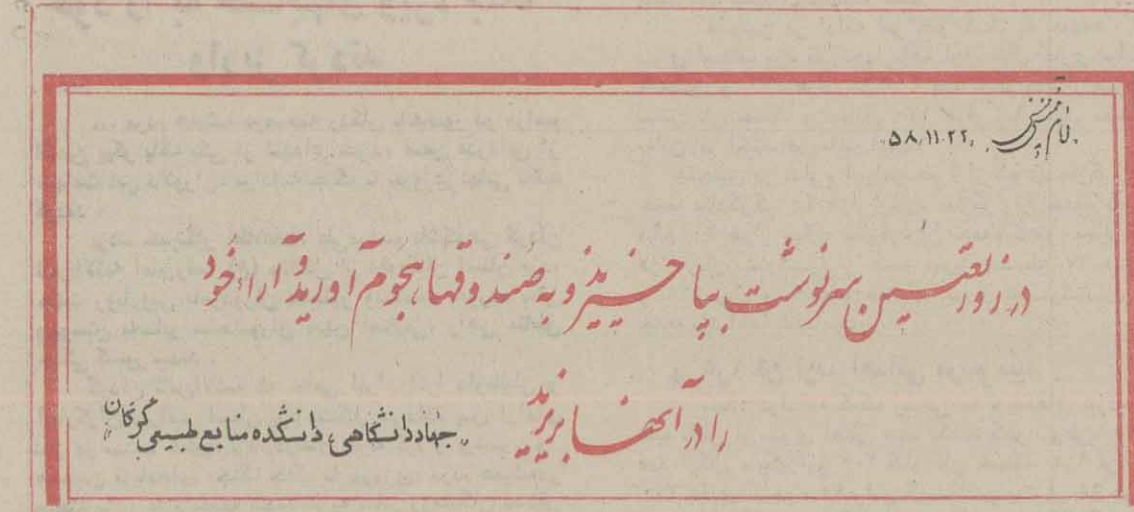 امام خمینی ۵۸.۱۱.۲۲
در روز تعیین سرنوشت بپا خیزید و به صندوقها هجوم آورید و آراء خود
را در آنها بریزید
"جهاد دانشگاهی، دانشکده منابع طبیعی گرگان"